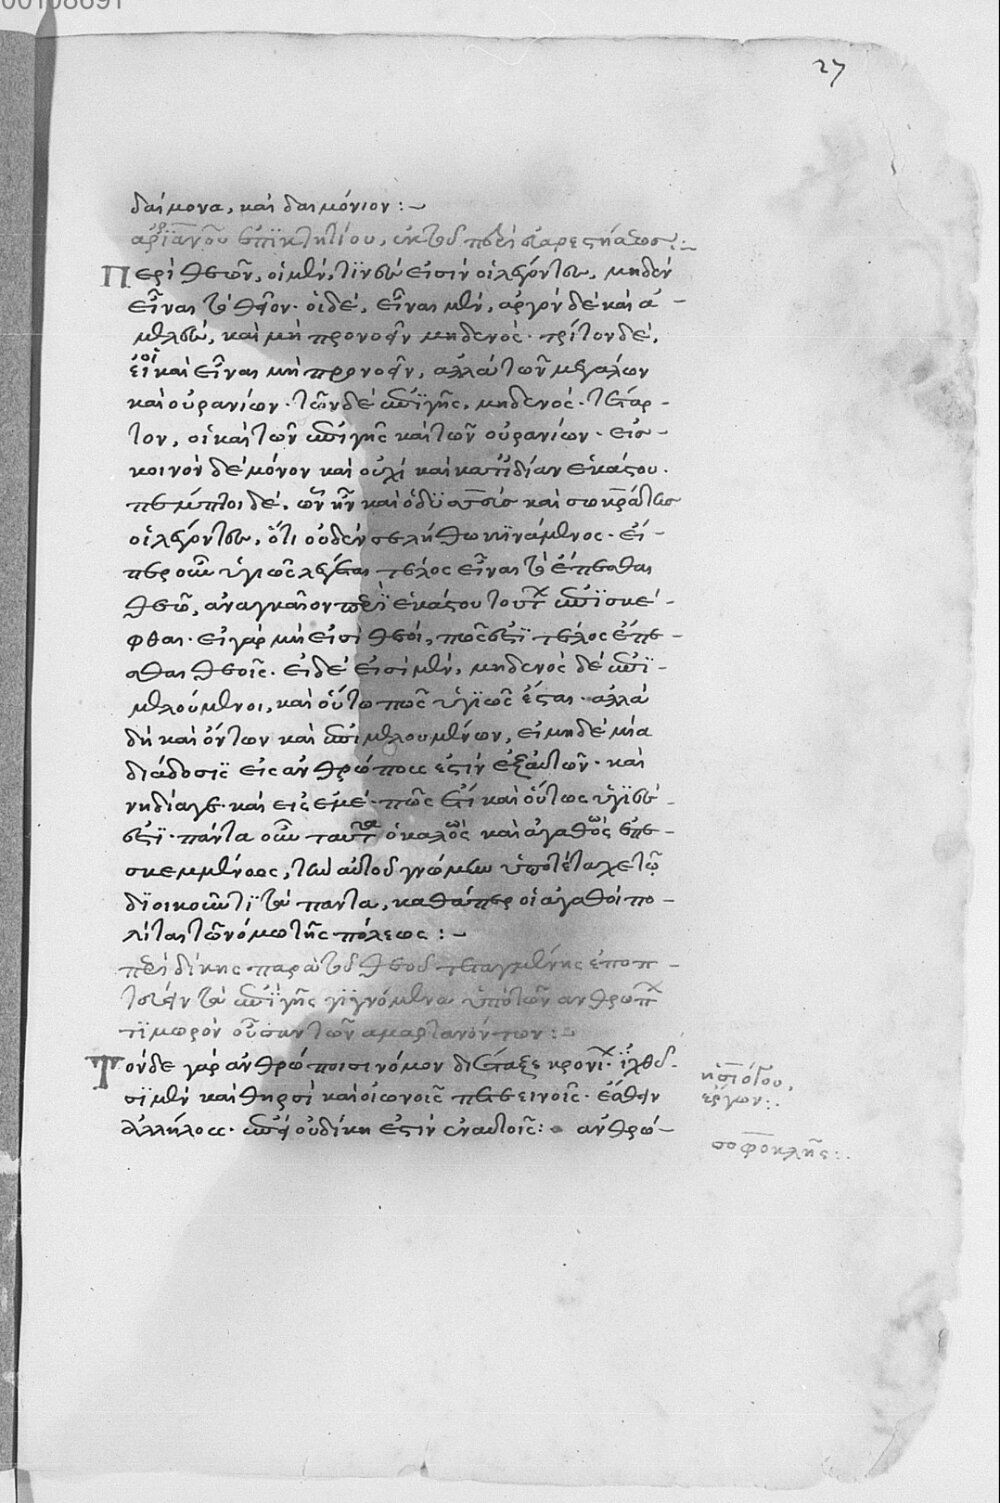 00108691
27
δαίμονα, καὶ δαιμόνιον :~
ἀρϊανοῦ ἐπϊκτητίου, ἐκ τοῦ περὶ εὐαρεστήσεως :~
Περὶ θεῶν, οἱ μὲν, τϊνές εἰσιν οἱ λέγοντες, μηδὲν
εἶναι τὸ θεῖον· οἱ δὲ, εἶναι μὲν, ἀργὸν δὲ καὶ ἀ-
μελὲς, καὶ μὴ προνοεῖν μηδενός· τρίτον δὲ,
οἱ καὶ εἶναι μὴ προνοεῖν, ἀλλὰ τῶν μεγάλων
καὶ οὐρανίων· τῶν δὲ ἐπὶ γῆς, μηδενός· τέταρ-
τον, οἱ καὶ τῶν ἐπὶ γῆς καὶ τῶν οὐρανίων· εἰς
κοινὸν δὲ μόνον καὶ οὐχὶ καὶ κατϊδίαν ἑκάστου·
πέμπτοι δὲ, ὧν ἦν καὶ ὀδϋσσεὺς καὶ σωκράτης
οἱ λέγοντες, ὅτι οὐδέν σε λήθω κϊνάμενος· εἴ-
περ οὖν ὑγιῶς λέγεται τέλος εἶναι τὸ ἕπεσθαι
θεῶ, ἀναγκαῖον περὶ ἑκάστου τούτων ἐπϊσκέ-
φθαι· εἰ γὰρ μὴ εἰσὶ θεοὶ, πῶς ἐστϊ τέλος ἕπε-
σθαι θεοῖς· εἰ δὲ εἰσὶ μὲν, μηδενὸς δὲ ἐπϊ-
μελούμενοι, καὶ οὕτω πῶς ὑγϊῶς ἔσται· ἀλλὰ
δὴ καὶ ὄντων καὶ ἐπιμελουμένων, εἰ μηδεμία
διάδοσϊς εἰς ἀνθρώπους ἐστὶν ἐξ αὐτῶν· καὶ
νὴ δία γε· καὶ εἰς ἐμέ· πῶς ἔτι καὶ οὕτως ὑγϊές
ἐστϊ· πάντα οὖν ταῦτα ὁ καλὸς καὶ ἀγαθὸς ἐπε-
σκεμμένος, τὴν αὐτοῦ γνώμην ὑποτέταχε τῶ
δϊοικοῦντϊ τὰ πάντα, καθάπερ οἱ ἀγαθοὶ πο-
λῖται τῶ νόμω τῆς πόλεως :~
περὶ δίκης παρὰ τοῦ θεοῦ τεταγμένης ἐποπ-
τεύειν τὰ ἐπὶ γῆς γϊγνόμενα ὑπὸ τῶν ἀνθρώπων
τϊμωρὸν οὖσαν τῶν ἁμαρτανόντων :~
Τόνδε γὰρ ἀνθρώποισι νόμον διέταξε κρονίων· ἰχθύ-
σϊ μὲν καὶ θηρσὶ καὶ οἰωνοῖς πετεεινοῖς· ἔσθειν
ἀλλήλους· ἐπεὶ οὐ δίκη ἐστὶν ἐν αὐτοῖς: ἀνθρώ-
ἡσιόδου,
ἔργων :.
σοφοκλῆς :.